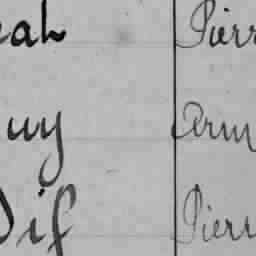 eah Pierr
uy Arm
Dif Pierr